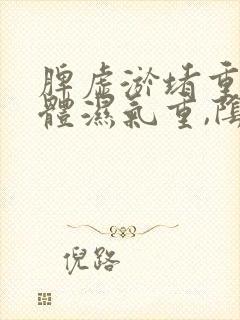 脾虛淤堵重
體濕氣重,陰
倪路